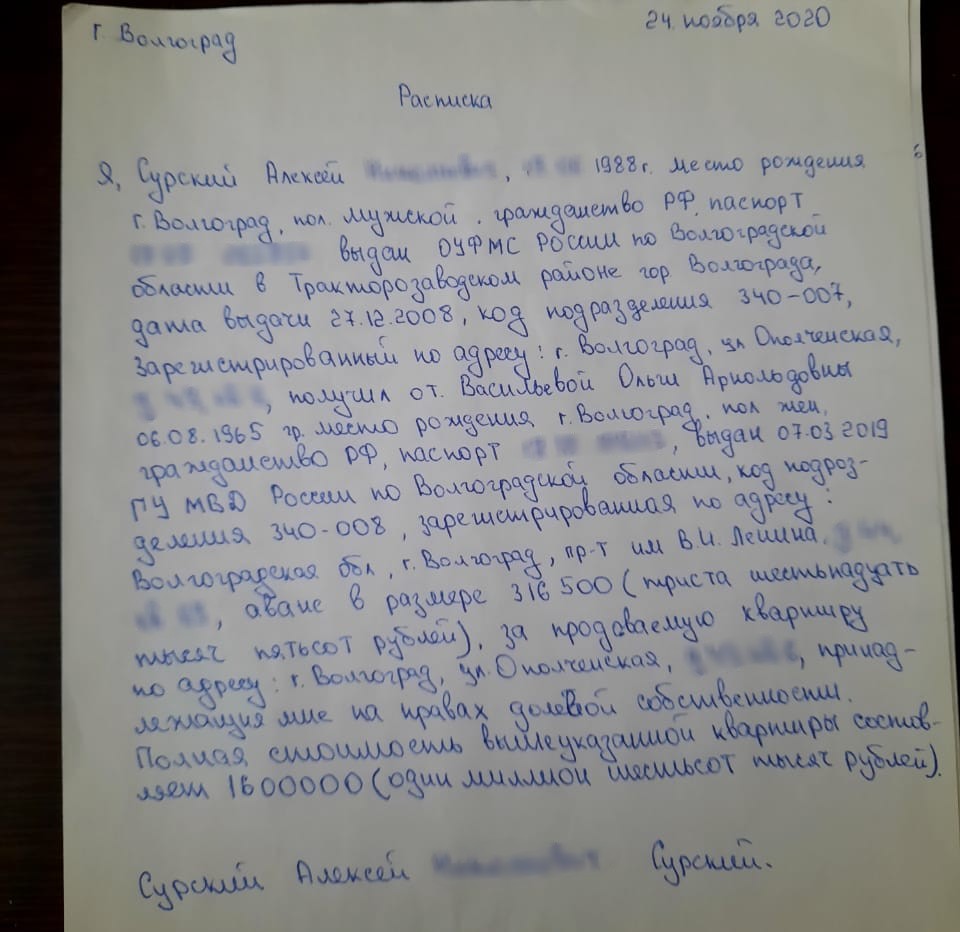 г. Волгоград
24. ноября 2020
Расписка
Я, Сурский Алексей , 1988г. место рождения
г. Волгоград, пол. мужской. гражданство РФ, паспорт
выдан ОУФМС России по Волгоградской
области в Тракторозаводском районе гор Волгограда,
дата выдачи 27.12.2008, код подразделения 340-007,
Зарегистрированный по адресу: г. Волгоград, ул Ополченская,
, получил от. Васильевой Ольги Арнольдовны
06.08.1965 гр. место рождения г. Волгоград. пол жен,
гражданство РФ, паспорт , выдан 07.03 2019
ГУ МВД России по Волгоградской области, код подроз-
деления 340-008, зарегистрированная по адресу:
Волгоградская обл, г. Волгоград, пр-т им В.И. Ленина.
, аванс в размере 316 500 (триста шестьнадцать
тысяч пятьсот рублей), за продаваемую квартиру
по адресу: г. Волгоград, ул. Ополченская, , принад-
лежащия мне на правах долевой собственности.
Полная стоимость вышеуказанной квартиры состов-
ляет 1600000 (один миллион шестьсот тысяч рублей).
Сурский Алексей Сурский.